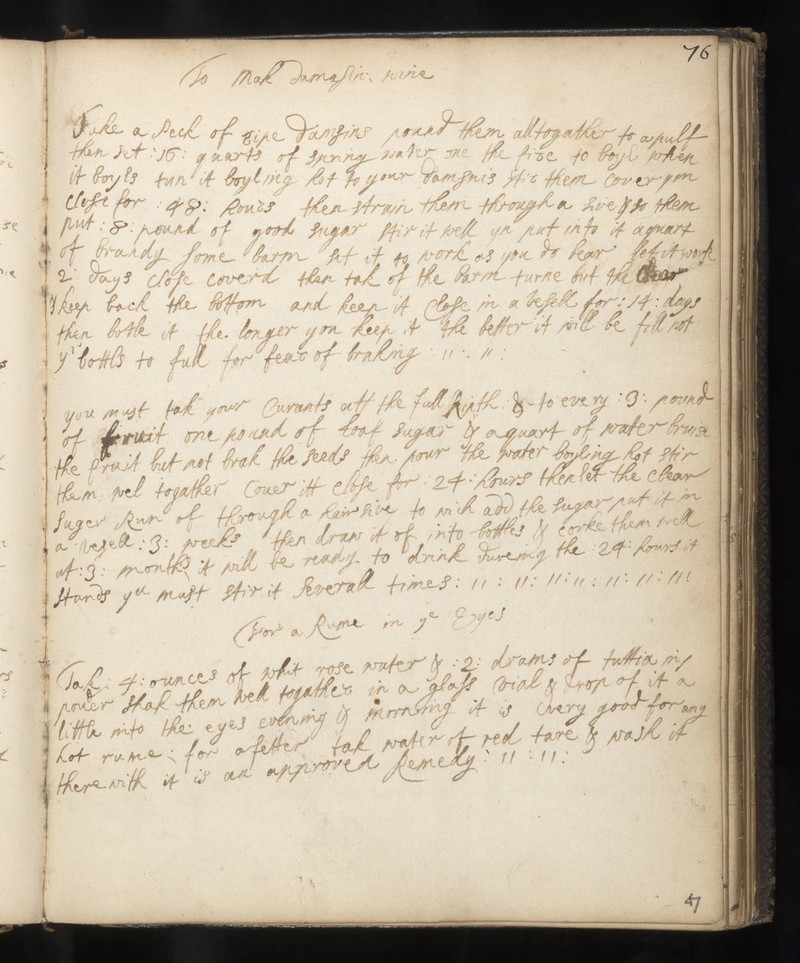 76
To Mak damasin wine
Take a Peck of ripe damsins pound them alltogather to a pulp
then set :16: quarts of spring water one the fire to boyl when
it boyls tun it boyling hot to your damsins stir them cover ym
close for :48: houers then strain them through a sive & to them
put :8: pound of good sugar stir it well yn put into it a quart
of brandy some barm set it to work as you do bear let it work
2: days close coverd then tak of the barm turne out the Clear
& keep back the bottom and keep it close in a vesell for :14: days
then botle it the longer you keep it the better it will be fill not
yr bottls to full for fear of braking :11:11:
you must tak your Curants att the full ripth & to every :3: pound
of fruit one pound of loaf sugar & a quart of water bruse
the fruit but not brak the seeds then pour the water boyling hot stir
them wel togather Couer itt close for :24: hours then let the clear
suger Run of through a hair sive to wich add the sugar put it in
a vesell :3: weeks then draw it of into bottles & corke them well
at :3: months it will be ready to drink dureing the :24: hours it
stands you must stir it Severall times :11:11:11:11:11:11:11
For a Rume in ye Eyes
Tak 4: ounces of whit rose water & :2: drams of tuttia in
pouder shak them well togather in a glass vial & drop of it a
little into the eyes evening & morning it is very good for any
hot rume : for a fetter tak water of red tare & wash it
therewith it is an approved Remedy :11:11:
47